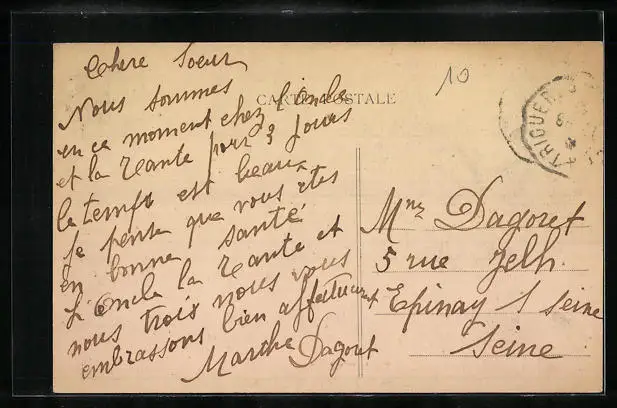 Chere Soeur
Nous sommes
CARTE POSTALE
10
en ce moment chez l'Oncle
et la Tante pour 3 jours
le temps est beau
je pense que vous êtes
en bonne santé
L'Oncle la Tante et
nous trois nous vous
embrassons bien affectueusent
Marthe Dagout
TRIGUER
Mme Dagout
5 rue
Epinay s/ seine
Seine